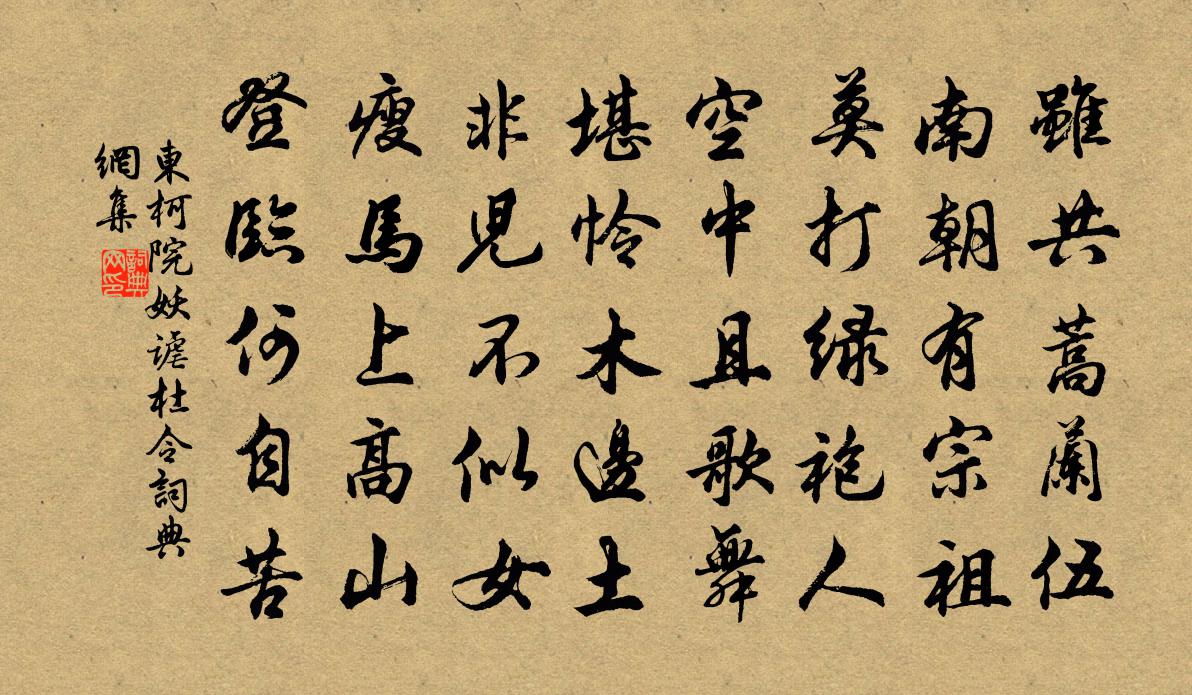 雖共蒿蘭伍
南朝有宗祖
莫打綠袍人
空中且歌舞
堪憐木邊土
非兒不似女
瘦馬上高山
登臨何自苦
東柯院妖謔杜令詞典
網集
詞典
网印